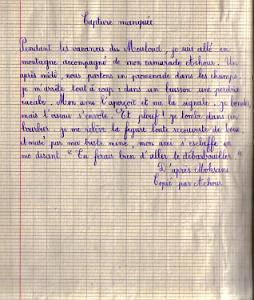 Capture manquée
Pendant les vacances du Mouloud, je suis allé en
montagne accompagné de mon camarade Achour. Un
après midi, nous partons en promenade dans les champs
je m'arrête tout à coup : dans un buisson une perdrix
cacabe. Mon ami l'aperçoit et me la signale. Je bondis
mais l'oiseau s'envole. "Et plouf ! je tombe dans un
bourbier. je me relève la figure toute recouverte de boue,
par ma triste mine, mon ami s'esclaffe en
me disant " Tu ferais bien d'aller te débarbouiller "
D'après
Copié par Achour